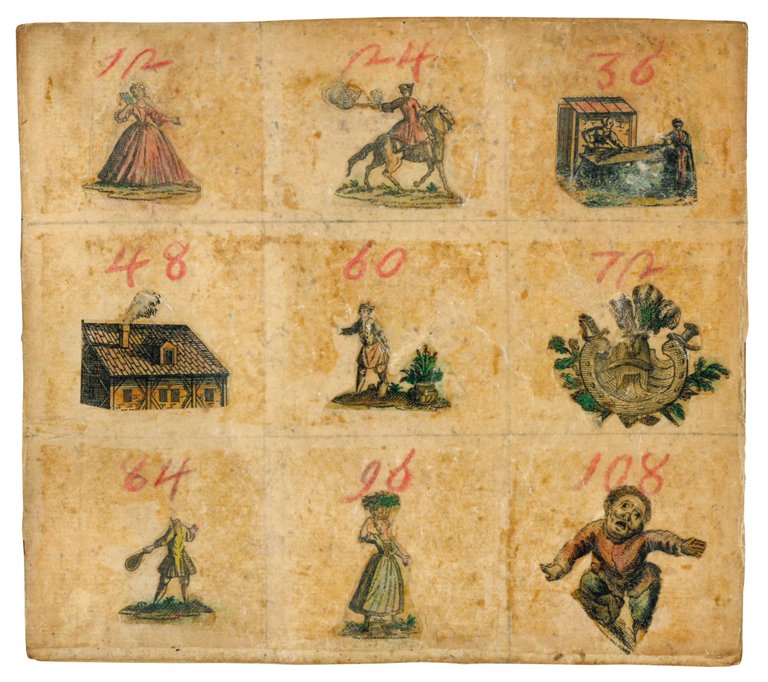 12 24 36
48 60 72
84 96 108